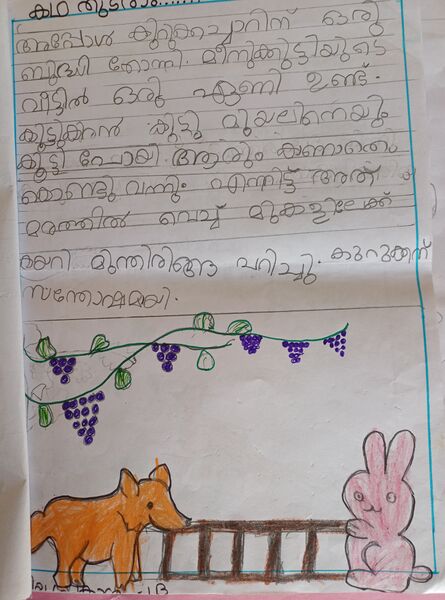 കഥ തുടരാം......
അപ്പോൾ കുറുക്കച്ചാറിന് ഒരു
ബുദ്ധി തോന്നി. മീനുക്കുട്ടിയുടെ
വീട്ടിൽ ഒരു ഏണി ഉണ്ട്.
കൂട്ടുകാരൻ കുട്ടു മുയലിനെയും
കൂട്ടി പോയി ആരും കാണാതെ
കൊണ്ടു വന്നും എന്നിട്ട് അത്
മരത്തിൽ വെച്ച് മുകളിലേക്ക്
കയറി മുന്തിരിങ്ങ പറിച്ചു. കുറുക്കന്
സന്തോഷമായി.